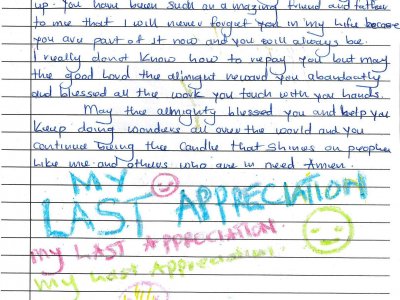 up. You have been such an amazing friend and father
to me that I will never forget you in my life because
you are part of it now and you will always be.
I really donot know how to repay you but may
the good Lord the almight reward you abundantly
and blessed all the work you touch with you hands.
May the almighty blessed you and help you
Keep doing wonders all over the world and you
continue being the Candle that Shines on people
like me and others who are in need Amen.
MY
LAST APPRECIATION
my LAST APPRECIATION.
my Last Appreciation.